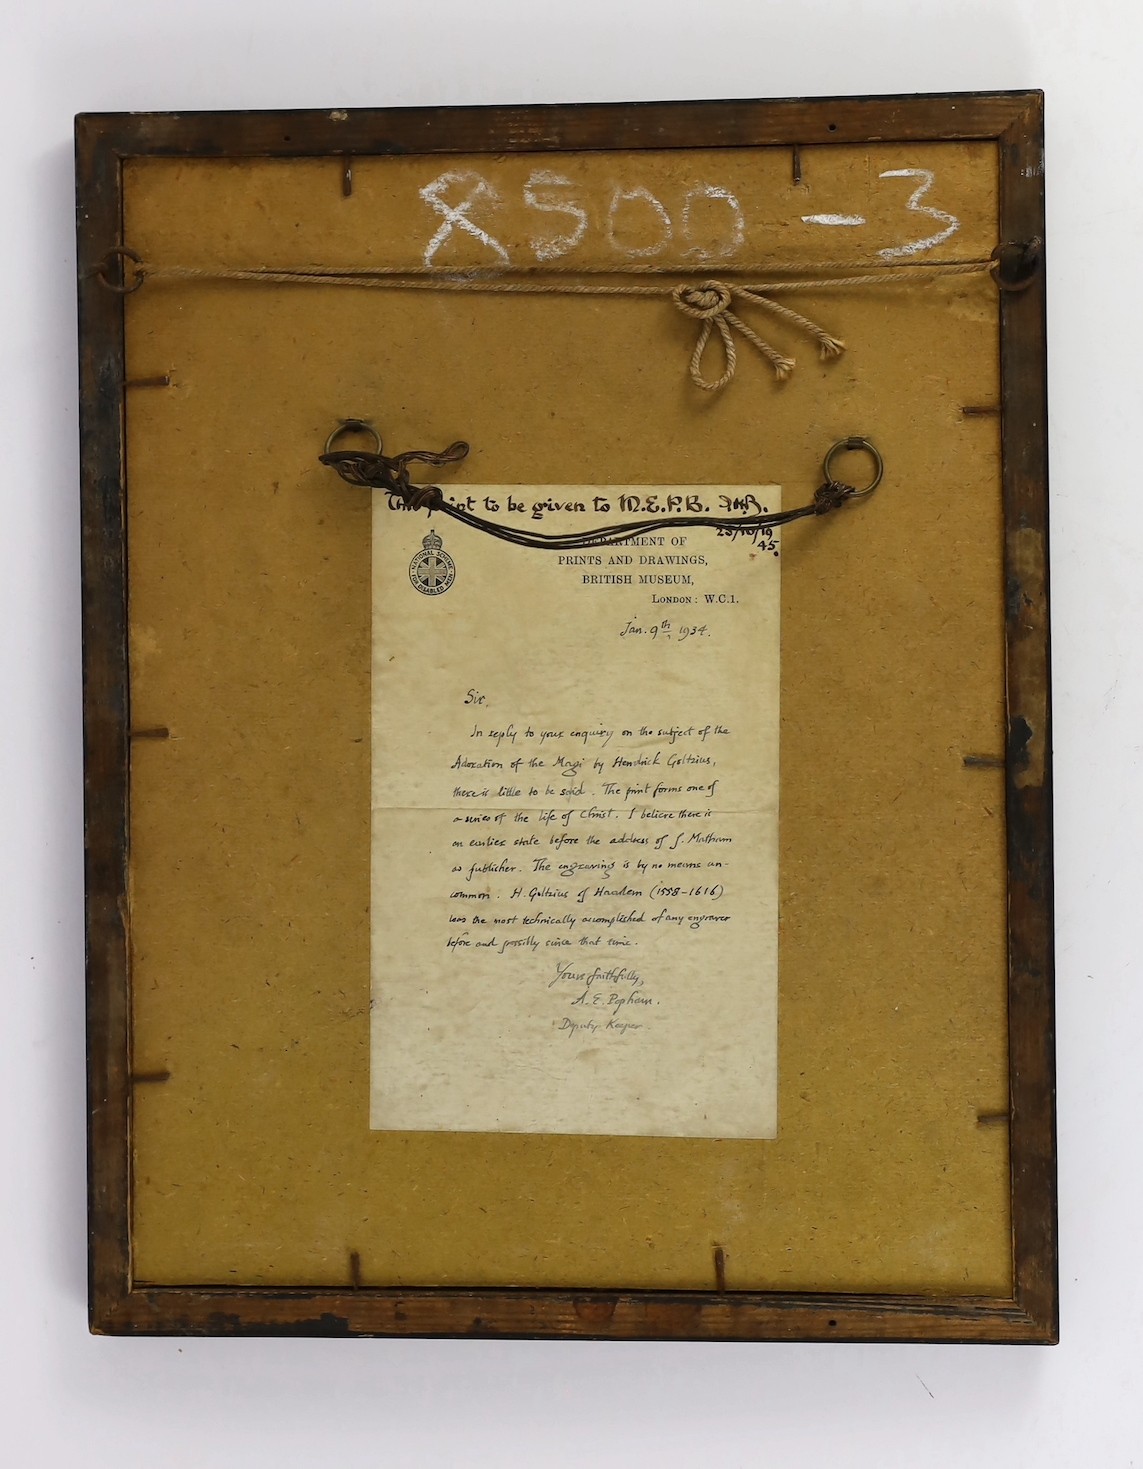 8500 - 3
This print to be given to M.E.P.B.
25/10/19
45.
NATIONAL SCHEME
FOR DISABLED MEN
DEPARTMENT OF
PRINTS AND DRAWINGS,
BRITISH MUSEUM,
LONDON: W.C.1.
Jan. 9th 1934.
Sir,
In reply to your enquiry on the subject of the
Adoration of the Magi by Hendrick Goltzius,
there is little to be said. The print forms one of
a series of the life of Christ. I believe there is
an earlier state before the address of J. Matham
as publisher. The engravings is by no means un-
common. H. Goltzius of Haarlem (1558-1616)
was the most technically accomplished of any engraver
before and possibly since that time.
Yours faithfully,
A. E. Popham.
Deputy Keeper.